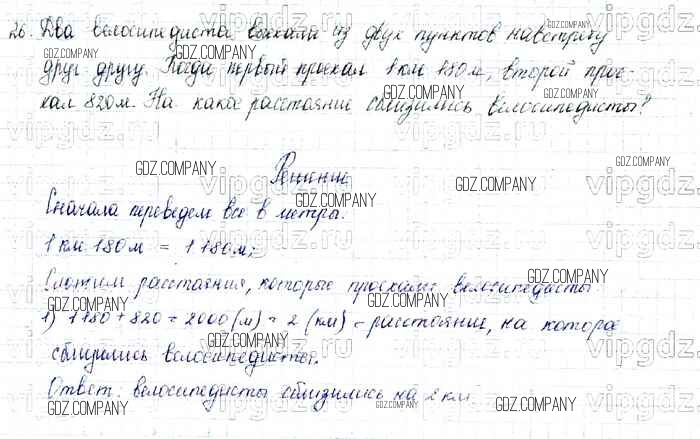 26. Два велосипедиста выехали из двух пунктов навстречу
друг другу. Когда первый проехал 1 км 180 м, второй прое-
хал 820 м. На какое расстояние сблизились велосипедисты?
Решение
Сначала переведем все в метры.
1 км 180 м = 1180 м;
Сложим расстояния, которые проехали велосипедисты
1) 1180 + 820 = 2000 (м) = 2 (км) – расстояние, на которое
сблизились велосипедисты.
Ответ: велосипедисты сблизились на 2 км